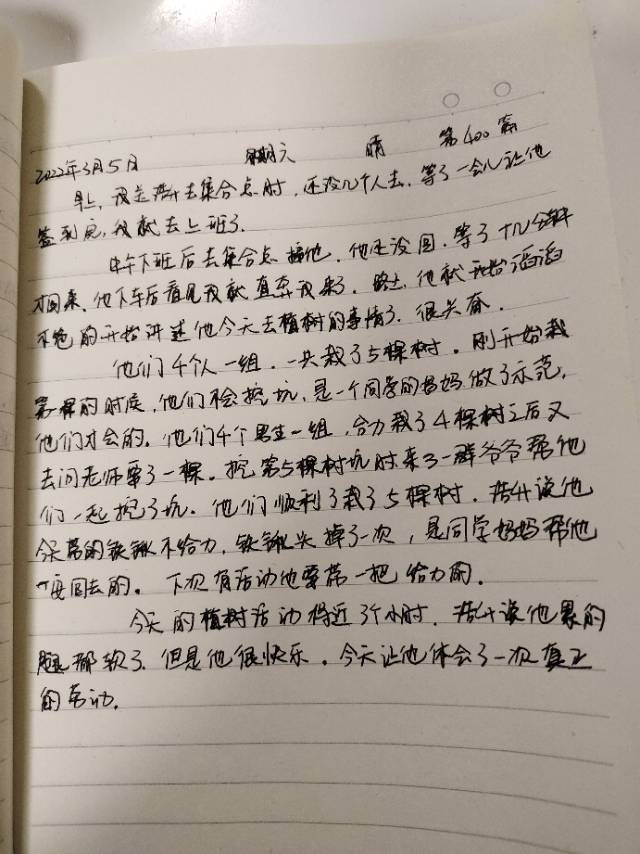 2022年3月5日 星期六 晴 第400篇
早上，我送浩升去集合点时，还没几个人去，等了一会儿让他
签到完，我就去上班了。
中午下班后去集合点接他，他还没回，等了十几分钟
才回来，他下车后看见我就直奔我来了。路上，他就开始滔滔
不绝的开始讲述他今天去植树的事情了，很兴奋。
他们4个人一组，一共栽了5棵树。刚开始栽
第一棵的时候，他们不会挖坑，是一个同学的妈妈做了示范，
他们才会的。他们4个男生一组，合力栽了4棵树之后又
去问老师要了一棵。挖第5棵树坑时来了一群爷爷帮他
们一起挖了坑。他们顺利了栽了5棵树。浩升说他
今天带的铁锹不给力，铁锹头掉了一次，是同学妈妈帮他
安回去的。下次有活动他要带一把给力的。
今天的植树活动将近3个小时，浩升说他累的
腿都软了，但是他很快乐。今天让他体会了一次真正
的劳动。